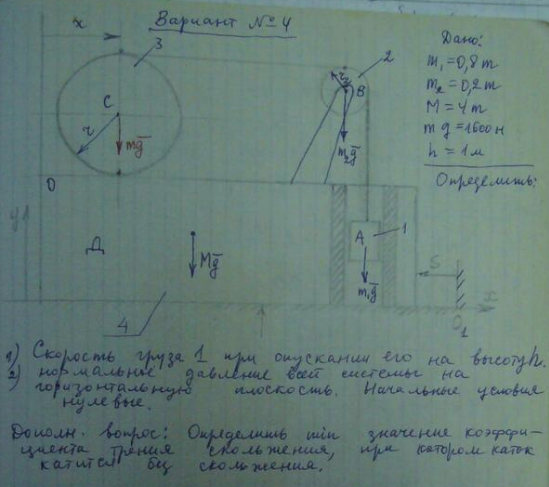 Вариант № 4
x
3
2
Дано:
m₁ = 0,8 m
m₂ = 0,2 m
M = 4 m
mg = 1600 н
h = 1 м
Определить:
C
r
mg
r₂
B
m₂g
O
y1
Д
Mg
A
1
m₁g
S
x
O₁
4
1) Скорость груза 1 при опускании его на высоту h.
2) нормальное давление всей системы на
горизонтальную плоскость. Начальные условия
нулевые.
Дополн. вопрос: Определить min значение коэффи-
циента трения скольжения, при котором каток
катится без скольжения.